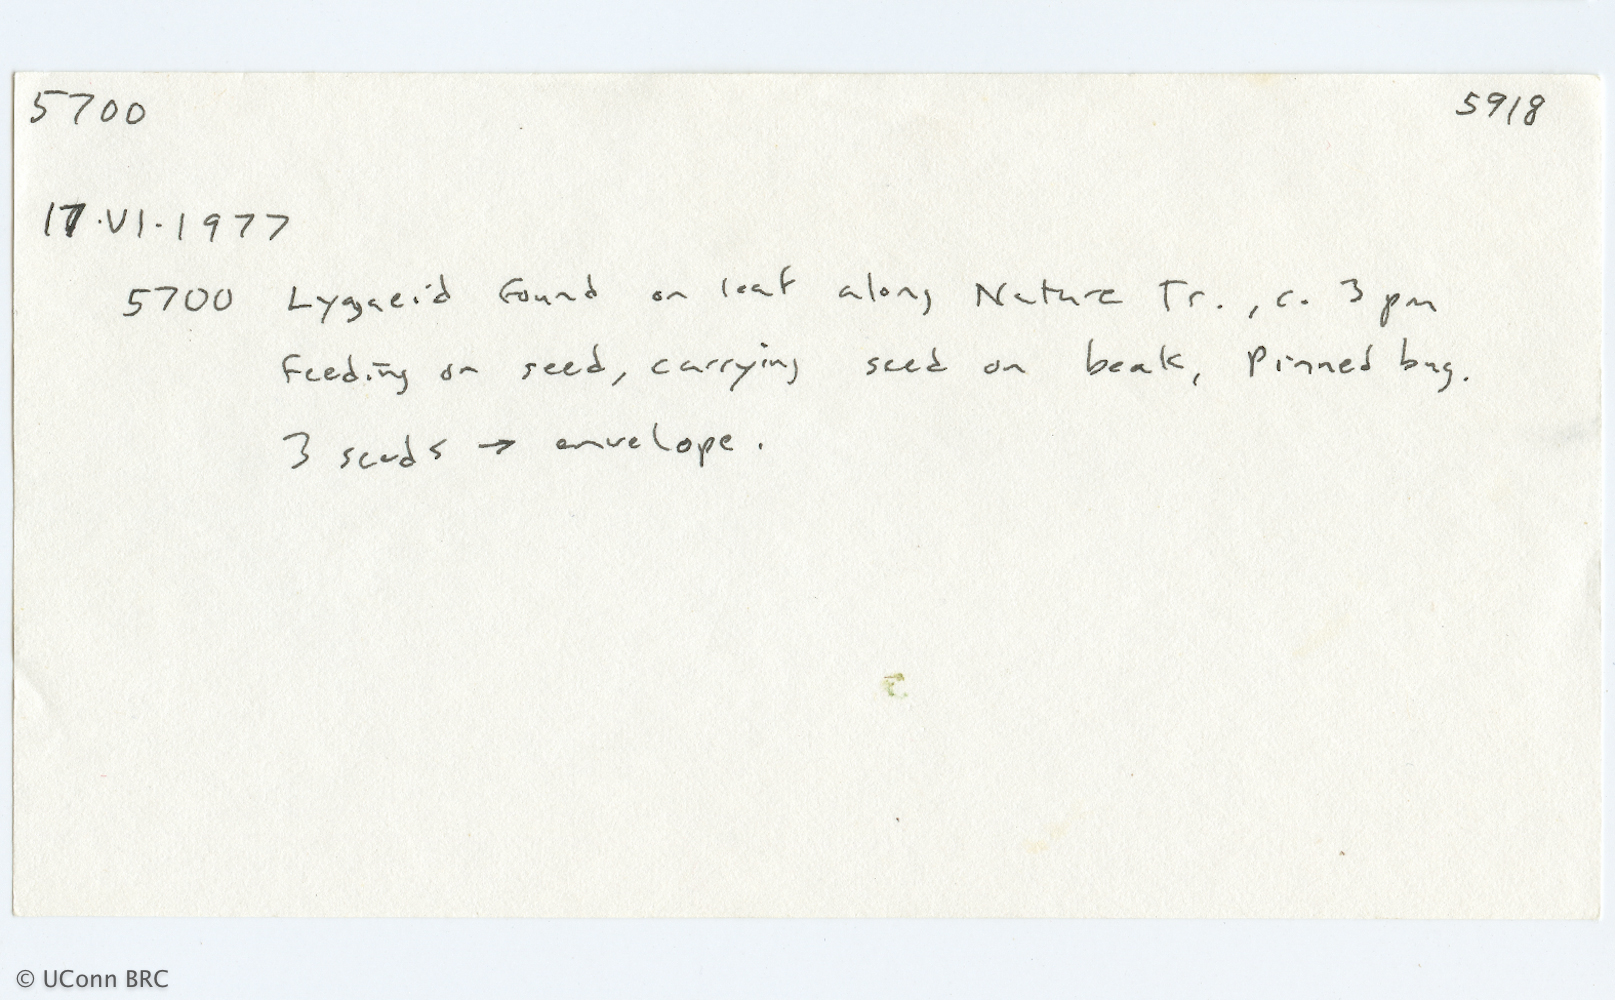 5700 5918
17.VI.1977
5700 Lygaeid found on leaf along Nature Tr., c. 3 pm
feeding on seed, carrying seed on beak, Pinned bug.
3 seeds → envelope.
© UConn BRC